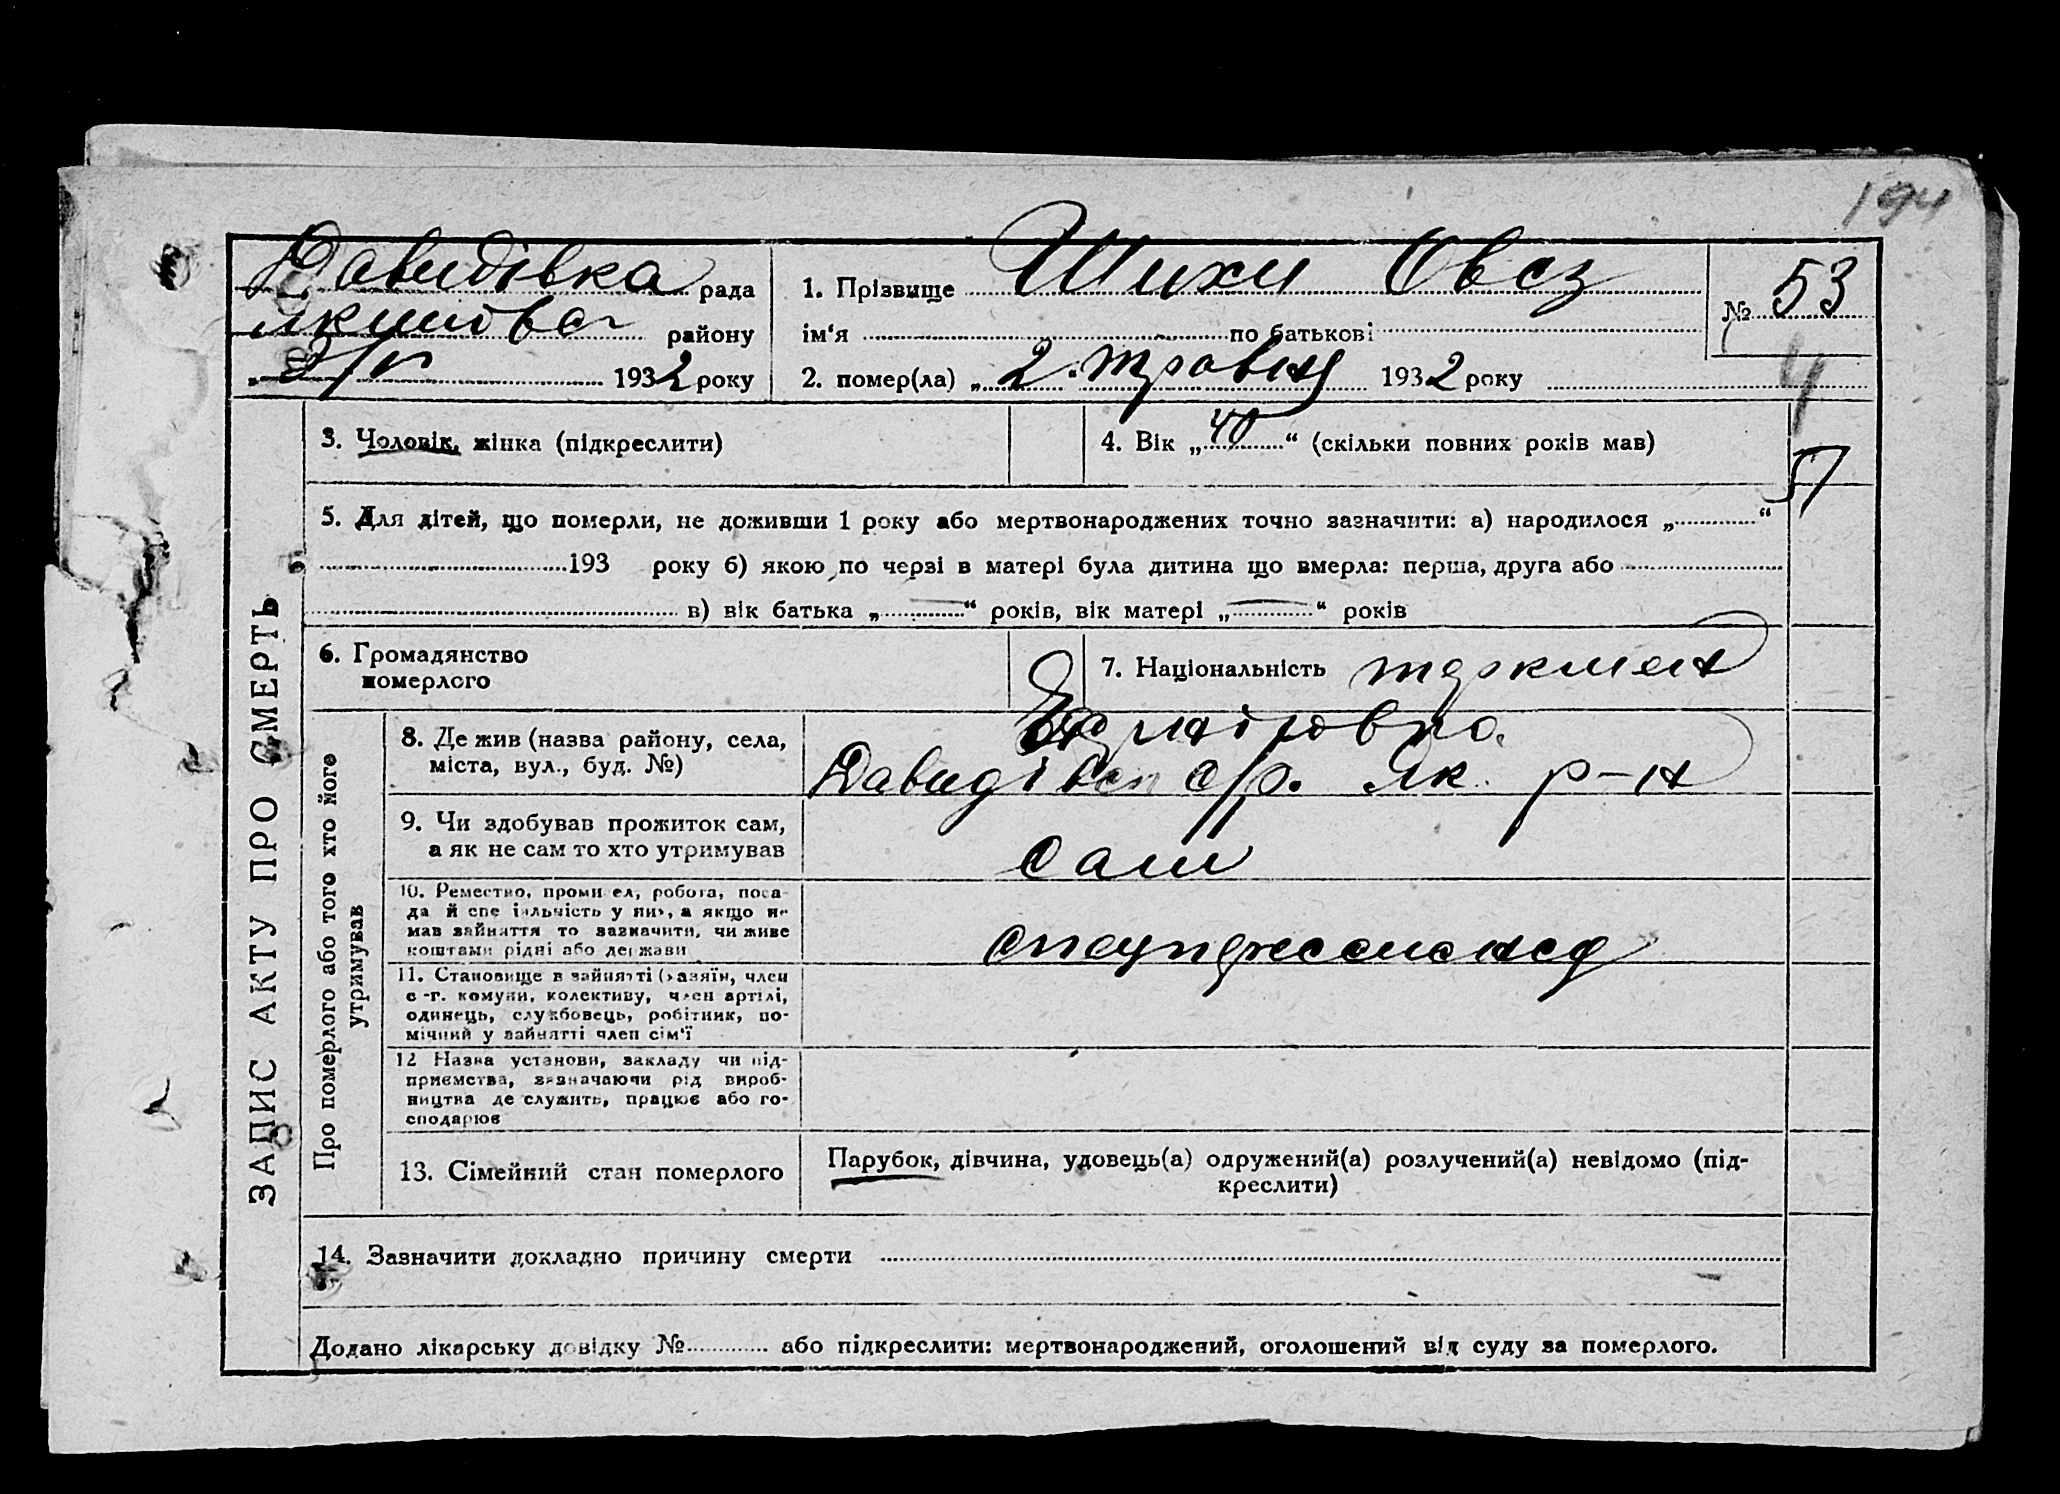 194
Давидівка рада
Якимовс району
2/V 1932 року
1. Прізвище Шихи Овез
ім‘я по батькові
2. помер(ла) „2“ травня 1932 року
№ 53
4
57
ЗАПИС АКТУ ПРО СМЕРТЬ
3. Чоловік, жінка (підкреслити)
4. Вік „40“ (скільки повних років мав)
5. Для дітей, що померли, не доживши 1 року або мертвонароджених точно зазначити: а) народилося „ “
193 року б) якою по черзі в матері була дитина що вмерла: перша, друга або
в) вік батька „—“ років, вік матері „—“ років
6. Громадянство
померлого
7. Національність туркмен
Про померлого або того хто його
утримував
8. Де жив (назва району, села,
міста, вул., буд. №)
Давидівск с/р. Як. р-н
9. Чи здобував прожиток сам,
а як не сам то хто утримував
сам
10. Ремество, промисел, робота, поса-
да й спеціяльність у них, а якщо не
мав зайняття то зазначити, чи живе
коштами рідні або держави
11. Становище в зайнятті (хазяїн, член
с.-г. комуни, колективу, член артілі,
одинець, службовець, робітник, по-
мічний у зайнятті член сім‘ї
12 Назва установи, закладу чи під-
приємства, зазначаючи рід вироб-
ництва де служить, працює або го-
сподарює
13. Сімейний стан померлого
Парубок, дівчина, удовець(а) одружений(а) розлучений(а) невідомо (під-
креслити)
14. Зазначити докладно причину смерти
Додано лікарську довідку № або підкреслити: мертвонароджений, оголошений від суду за померлого.